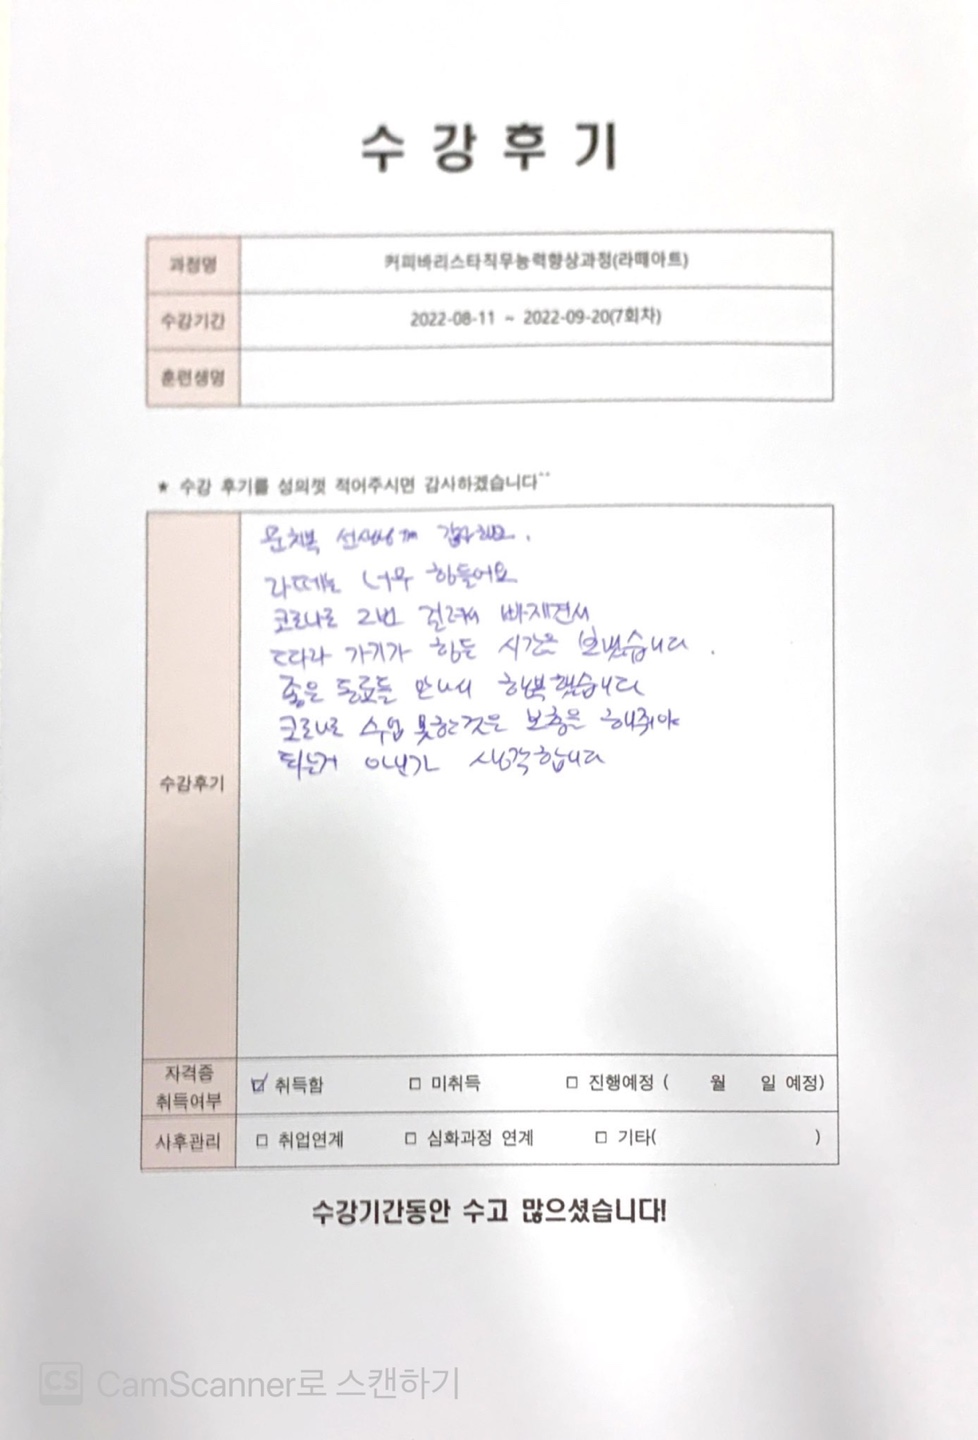 수 강 후 기
과정명 커피바리스타직무능력향상과정(라떼아트)
수강기간 2022-08-11 ~ 2022-09-20(7회차)
훈련생명
★ 수강 후기를 성의껏 적어주시면 감사하겠습니다^^
선생님께 감사해요.
라떼는 너무 힘들어요
코로나로 2번 걸려서 빠지면서
따라 가기가 힘든 시간을 보냈습니다.
좋은 동료들 만나서 행복했습니다
코로나로 수업 못한것은 보충은 해줘야
되는거 아닌가 생각합니다
수강후기
자격증
취득여부
☑ 취득함 □ 미취득 □ 진행예정 ( 월 일 예정)
사후관리 □ 취업연계 □ 심화과정 연계 □ 기타( )
수강기간동안 수고 많으셨습니다!
CS CamScanner로 스캔하기